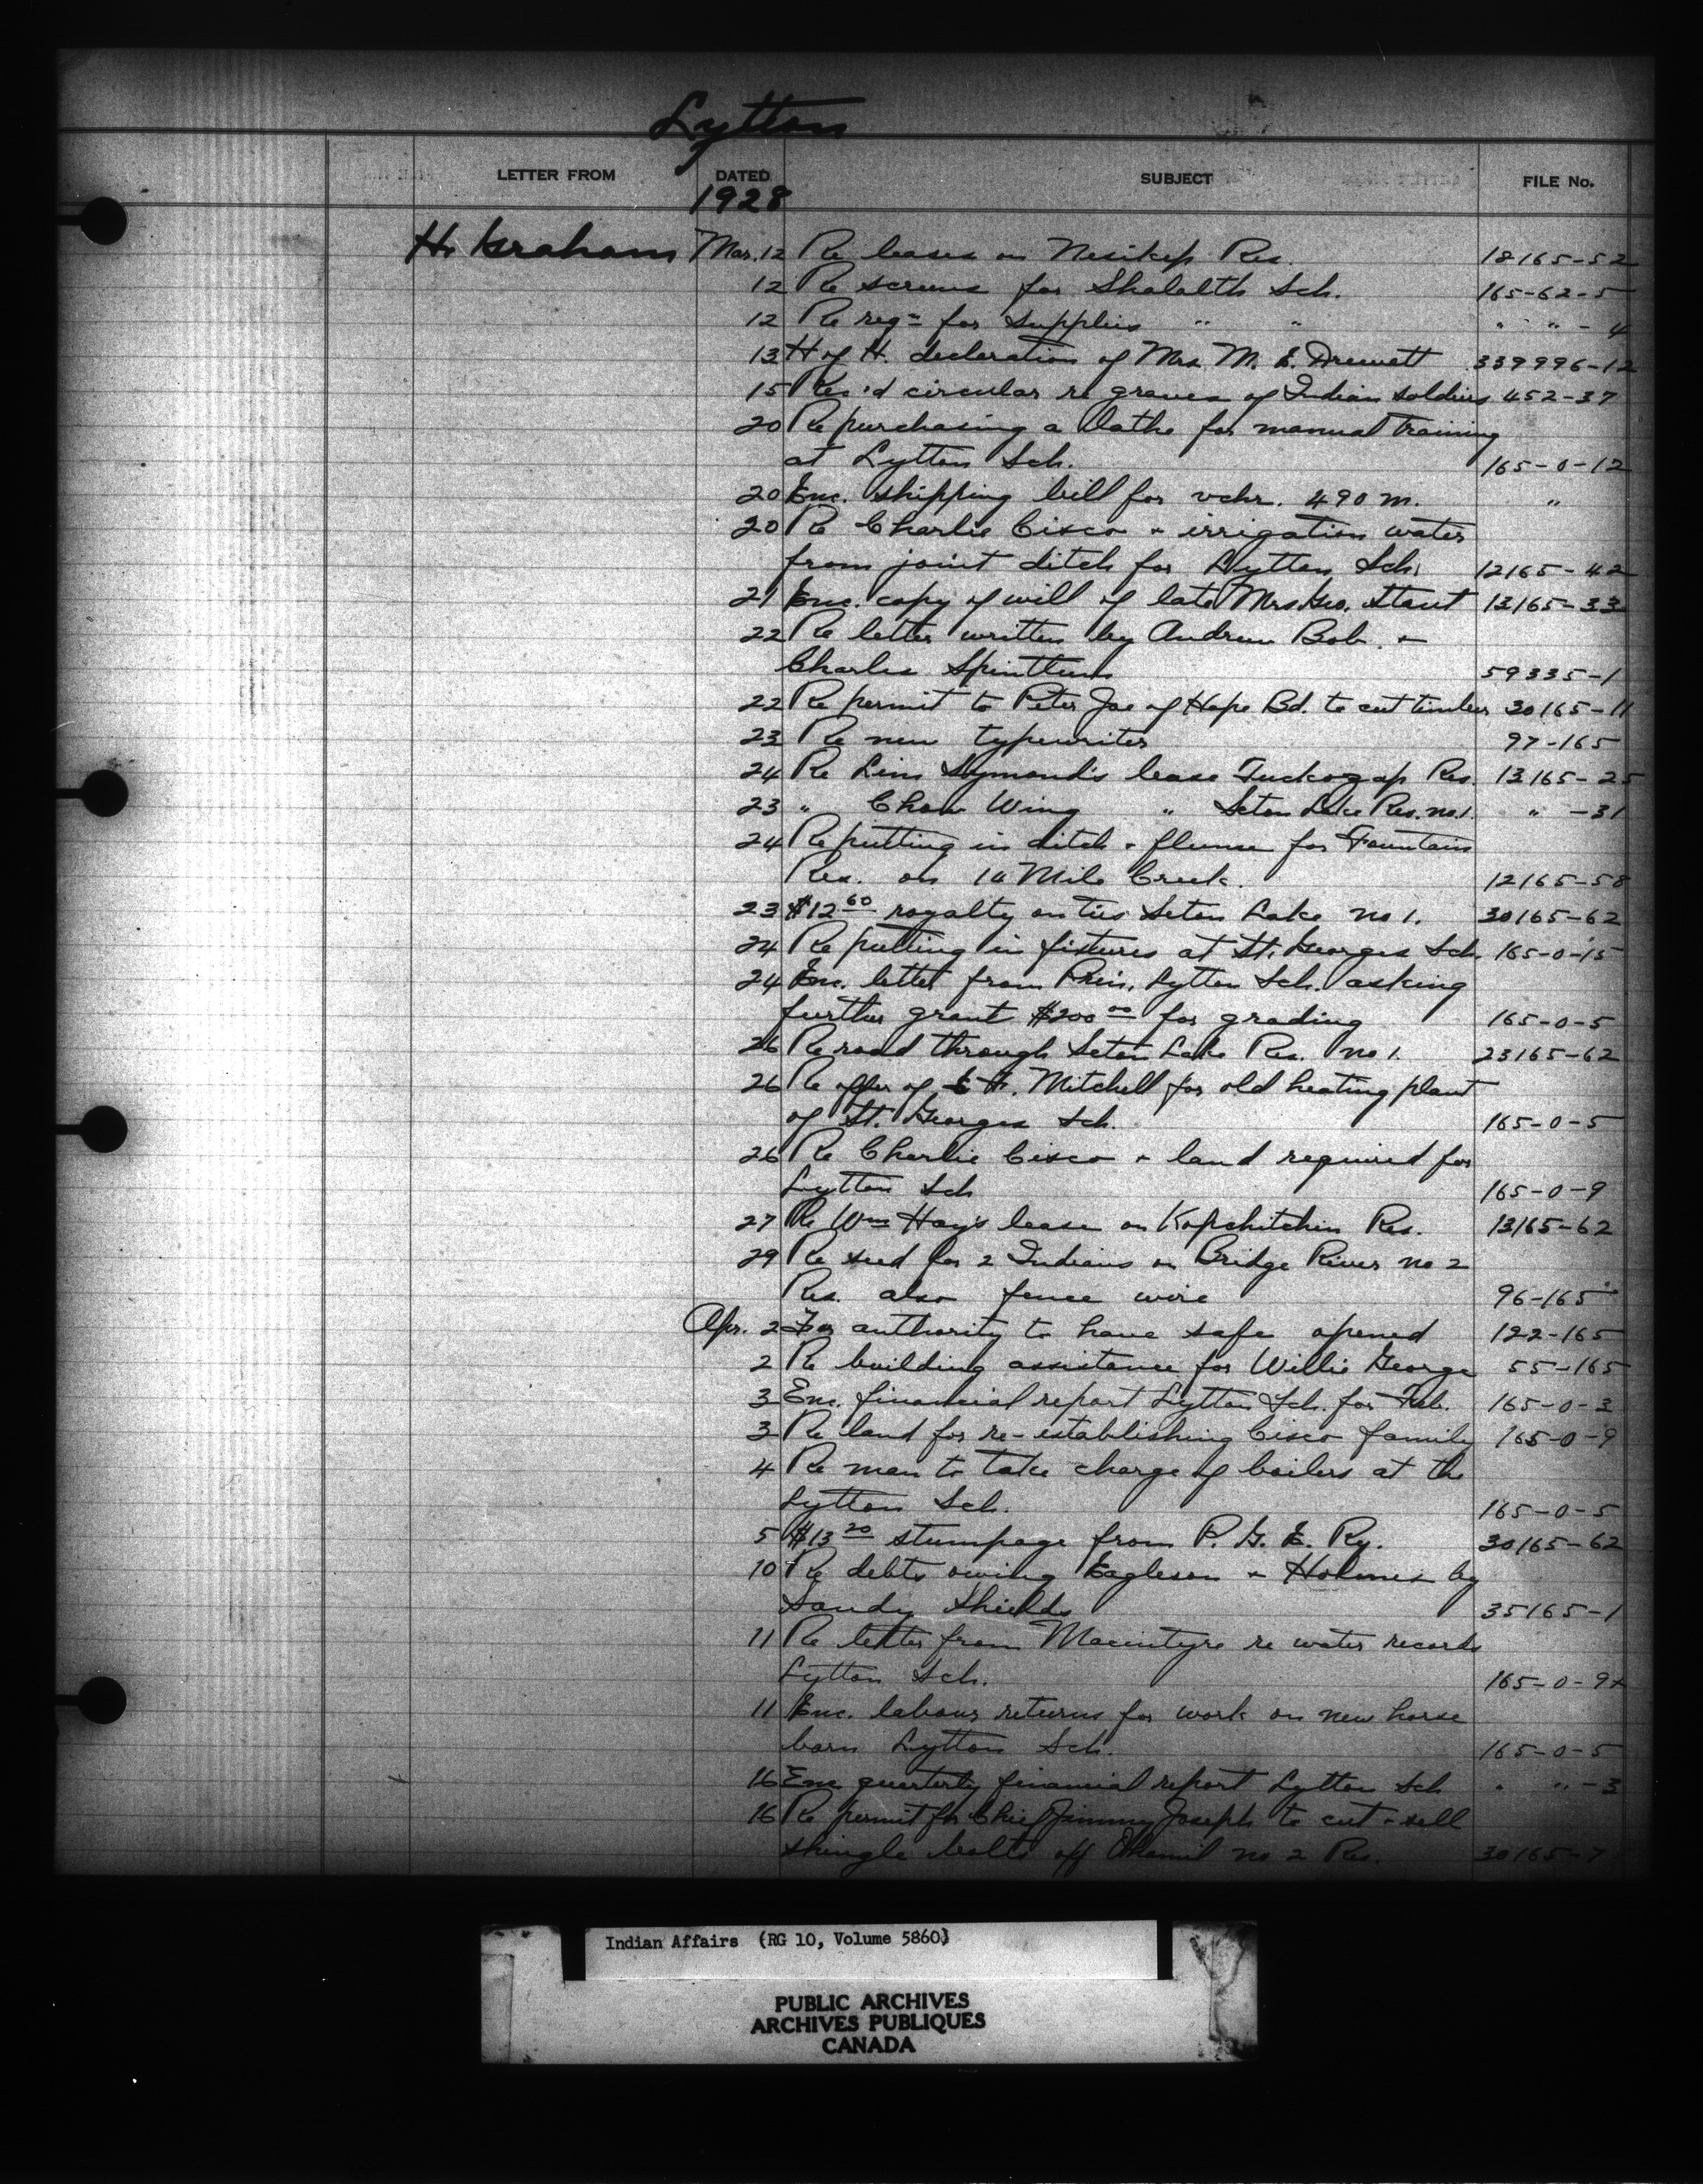 Lytton
LETTER FROM DATED SUBJECT FILE No.
1928
H. Graham Mar. 12 Re leases on Nesikep Res. 18165-52
12 Re screens for Shalalth Sch. 165-62-5
12 Re reqn for supplies " " " " - 4
13 H of H. declaration of Mrs. M. E. Drewett 339996-12
15 Rec'd circular re graves of Indian soldiers 452-37
20 Re purchasing a lathe for manual training
at Lytton Sch. 165-0-12
20 Enc. shipping bill for vchr. 490 M. "
20 Re Charlie Cisco + irrigation water
from joint ditch for Lytton Sch. 12165-42
21 Enc. copy of will of late Mrs Geo. Stout 13165-33
22 Re letter written by Andrew Bob +
Charles Spintlum 59335-1
22 Re permit to Peter Joe of Hope Bd. to cut timber 30165-11
23 Re new typewriter 97-165
24 Re Lim Symond's lease Res. 13165-25
23 " Chow Wing " Seton Lake Res. no 1. " -31
24 Re putting in ditch + flume for Fountain
Res. on 14 Mile Creek. 12165-58
23 $12 60 royalty on ties Seton Lake no 1. 30165-62
24 Re putting in fixtures at St. Georges Sch. 165-0-15
24 Enc. letter from Prin. Lytton Sch. asking
further grant $200 00 for grading 165-0-5
26 Re road through Seton Lake Res. no 1. 23165-62
26 Re offer of E. F. Mitchell for old heating plant
of St. Georges Sch. 165-0-5
26 Re Charlie Cisco + land required for
Lytton Sch 165-0-9
27 Re Wm Hay's lease on Kopchitchin Res. 13165-62
29 Re seed for 2 Indians on Bridge River no 2
Res. also fence wire 96-165
Apr. 2 For authority to have safe opened 122-165
2 Re building assistance for Willie George 55-165
3 Enc. financial report Lytton Sch. for Feb. 165-0-3
3 Re land for re-establishing Cisco family 165-0-9
4 Re man to take charge of boilers at the
Lytton Sch. 165-0-5
5 $13 20 stumpage from P. G. E. Ry. 30165-62
10 Re debts owing Eagleson + Holmes by
Sandy Shields 35165-1
11 Re letter from Macintyre re water records
Lytton Sch. 165-0-9x
11 Enc. labour returns for work on new horse
barn Lytton Sch. 165-0-5
16 Enc quarterly financial report Lytton Sch " " -3
16 Re permit for Chief Jimmy Joseph to cut + sell
shingle bolts off Ohamil no 2 Res. 30165-7
Indian Affairs (RG 10, Volume 5860)
PUBLIC ARCHIVES
ARCHIVES PUBLIQUES
CANADA